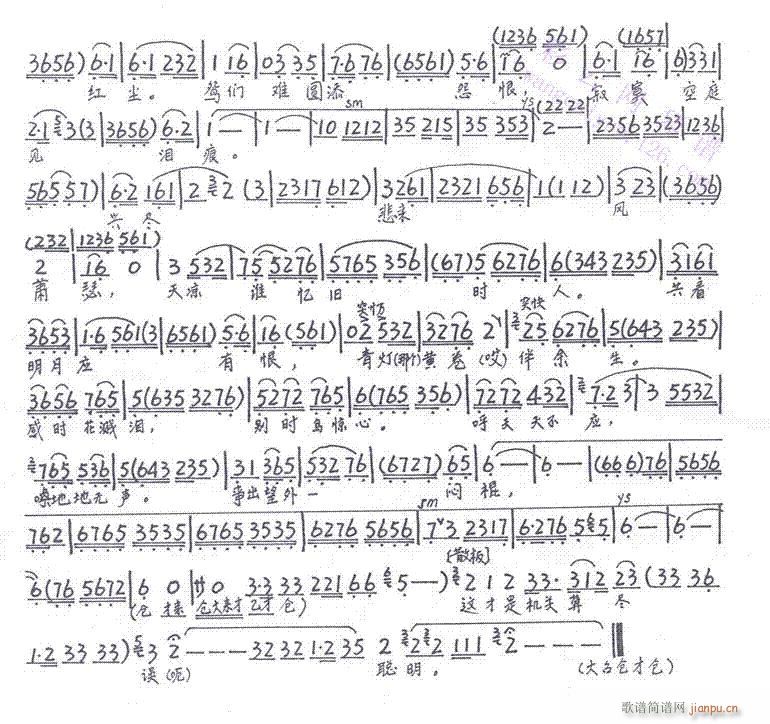 (1236 561) (1657)
3656) 6·1 | 6·1 232 | 1 16 | 03 35 | 7·6 76 | (6561) 5·6 | 16 0 | 6·1 16 | 6 331 |
红 尘。 鸳们 难 圆 添 怨 恨， 寂 寞 空庭
2·1 3(3 | 3656) 6·2 | 1 — | 1 — | 10 1212 | 35 215 | 35 353 | 2 — | 2356 3523 | 1236
见 泪 痕。
5655 57) | 6·2 161 | 2 2 (3 | 2317 612) | 3261 | 2321 656 | 1(1 12) | 3 23 | (3656)
共冬 悲来 风
(232 | 1236 561)
2 | 16 0 | 3 532 | 75 5276 | 5765 356 | (67)5 6276 | 6(343 235) | 3161 |
萧 瑟， 天凉 谁 忆 旧 时 人。 共看
3653 | 1·6 561(3 | 6561) 5·6 | 16 (561) | 02 532 | 3276 2 | 25 6276 | 5(643 235) |
明月应 有 恨， 青灯(那个)黄卷(哎)伴 余 生。
3656 765 | 5(635 3276) | 5272 765 | 6(765 356) | 7272 432 | 7·2 3 | 3 5532 |
感时 花溅 泪， 别时 鸟惊 心。 呼天 天不 应，
765 536 | 5(643 235) | 31 365 | 532 76 | (6727) 65 | 6 — | 6 — | (666)76 | 5656
嚎地地无 声。 事出望外一 闷 棍，
762 | 6765 3535 | 6765 3535 | 6276 5656 | 7 3 2317 | 6·276 5 5 | 6 — | 6 — |
[散板]
6(76 5672 | 6 0 | 0 3·3 33 221 66 5 — —) 2 1 2 33· 312 23 (33 36
(仓 才来 仓大来才 乙才 仓) 这才是机关算 尽
1·2 33 33) 3 2 — — — 32 32 1·2 35 2 2 2 111 2 — — —
误(呃) 聪明。 (大台仓才仓)
歌谱简谱网 jianpu.cn